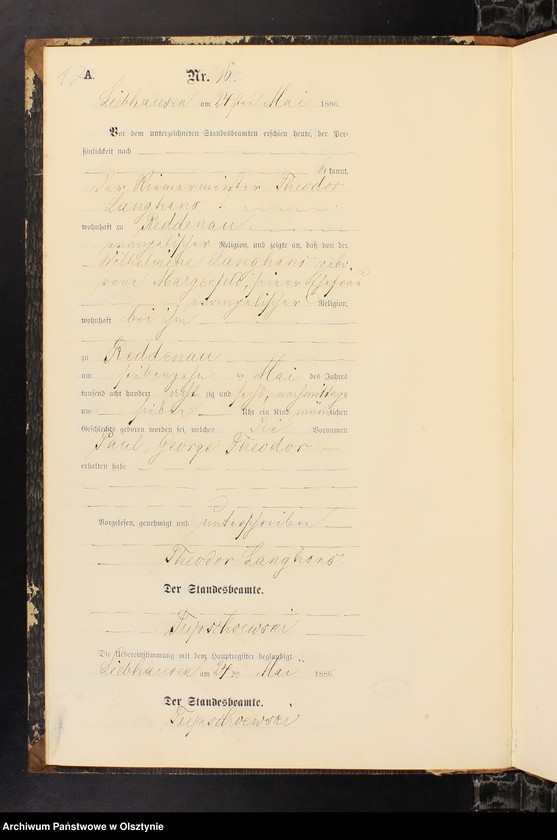 A.
Nr. 16.
Liebhausen am 24ten Mai 1886.
Vor dem unterzeichneten Standesbeamten erschien heute, der Per-
sönlichkeit nach
bekannt,
der Riemermeister Theodor
Langhans
wohnhaft zu Reddenau
evangelischer Religion, und zeigte an, daß von der
Wilhelmine Langhans gebo-
rene Margenfeld, seiner Ehefrau
evangelischer Religion,
wohnhaft bei ihm
zu Reddenau
am siebenzehn ten Mai des Jahres
tausend acht hundert acht zig und sechs, nachmittags
um sieben Uhr ein Kind männlichen
Geschlechts geboren worden sei, welches die Vornamen
Paul George Theodor
erhalten habe
Vorgelesen, genehmigt und unterschrieben
Theodor Langhans.
Der Standesbeamte.
Die Uebereinstimmung mit dem Hauptregister beglaubigt.
Liebhausen am 24 ten Mai 1886.
Der Standesbeamte.
Archiwum Państwowe w Olsztynie